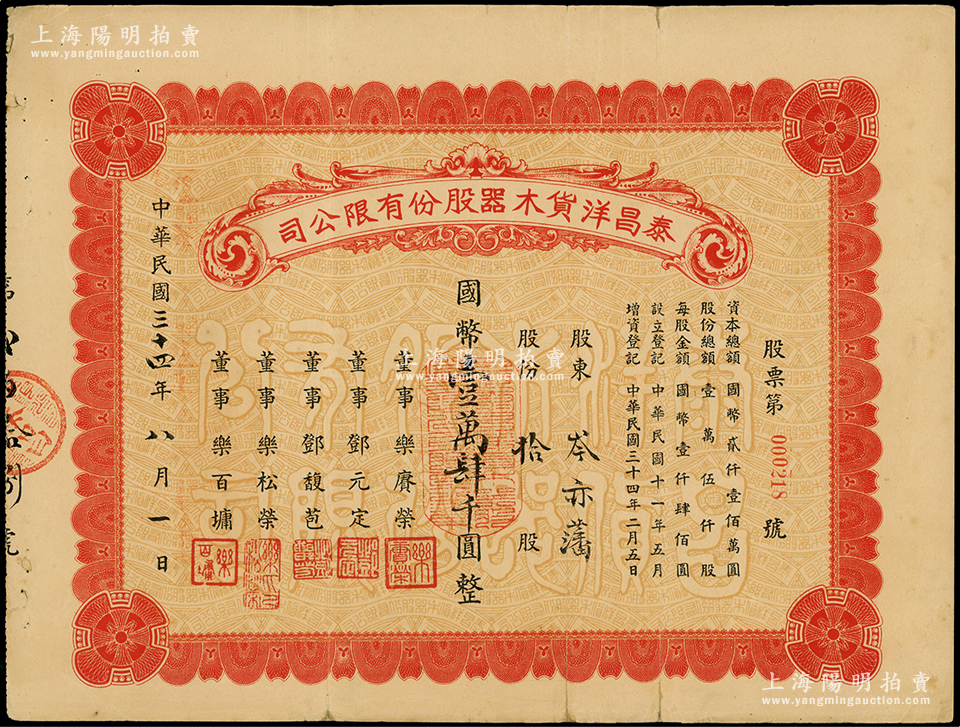 上海陽明拍賣
www.yangmingauction.com
泰昌洋貨木器股份有限公司
股票第 000218 號
資本總額 國幣貳仟壹佰萬圓
股份總額 壹萬伍仟股
每股金額 國幣壹仟肆佰圓
設立登記 中華民國十一年五月
增資登記 中華民國三十四年二月五日
股東 岑亦藩
股份 拾 股
國幣壹萬肆千圓整
董事 樂賡榮
董事 鄧元定
董事 鄧馥芭
董事 樂松榮
董事 樂百墉
中華民國三十四年八月一日
上海陽明拍賣
www.yangmingauction.com
上海陽明拍賣
www.yangmingauction.com